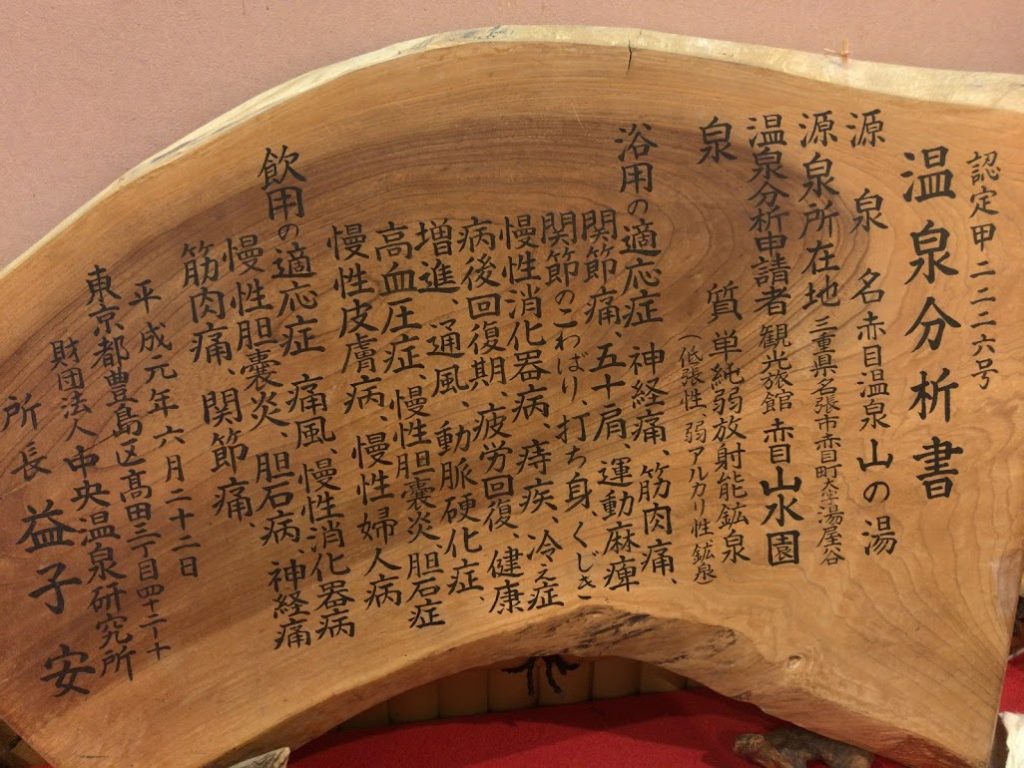 認定甲二二二六号
温泉分析書
源泉名 赤目温泉 山の湯
源泉所在地 三重県名張市赤目町大字湯屋谷
温泉分析申請者 観光旅館 赤目山水園
泉質 単純弱放射能鉱泉
(低張性、弱アルカリ性鉱泉
浴用の適応症 神経痛、筋肉痛、
関節痛、五十肩、運動麻痺
関節のこわばり、打ち身、くじき
慢性消化器病、痔疾、冷え症
病後回復期、疲労回復、健康
増進、通風、動脈硬化症、
高血圧症、慢性胆嚢炎、胆石症
慢性皮膚病、慢性婦人病
飲用の適応症 痛風、慢性消化器病
慢性胆嚢炎、胆石病、神経痛
筋肉痛、関節痛、
平成元年六月二十二日
東京都豊島区高田三丁目四十二-十
財団法人 中央温泉研究所
所長 益子 安